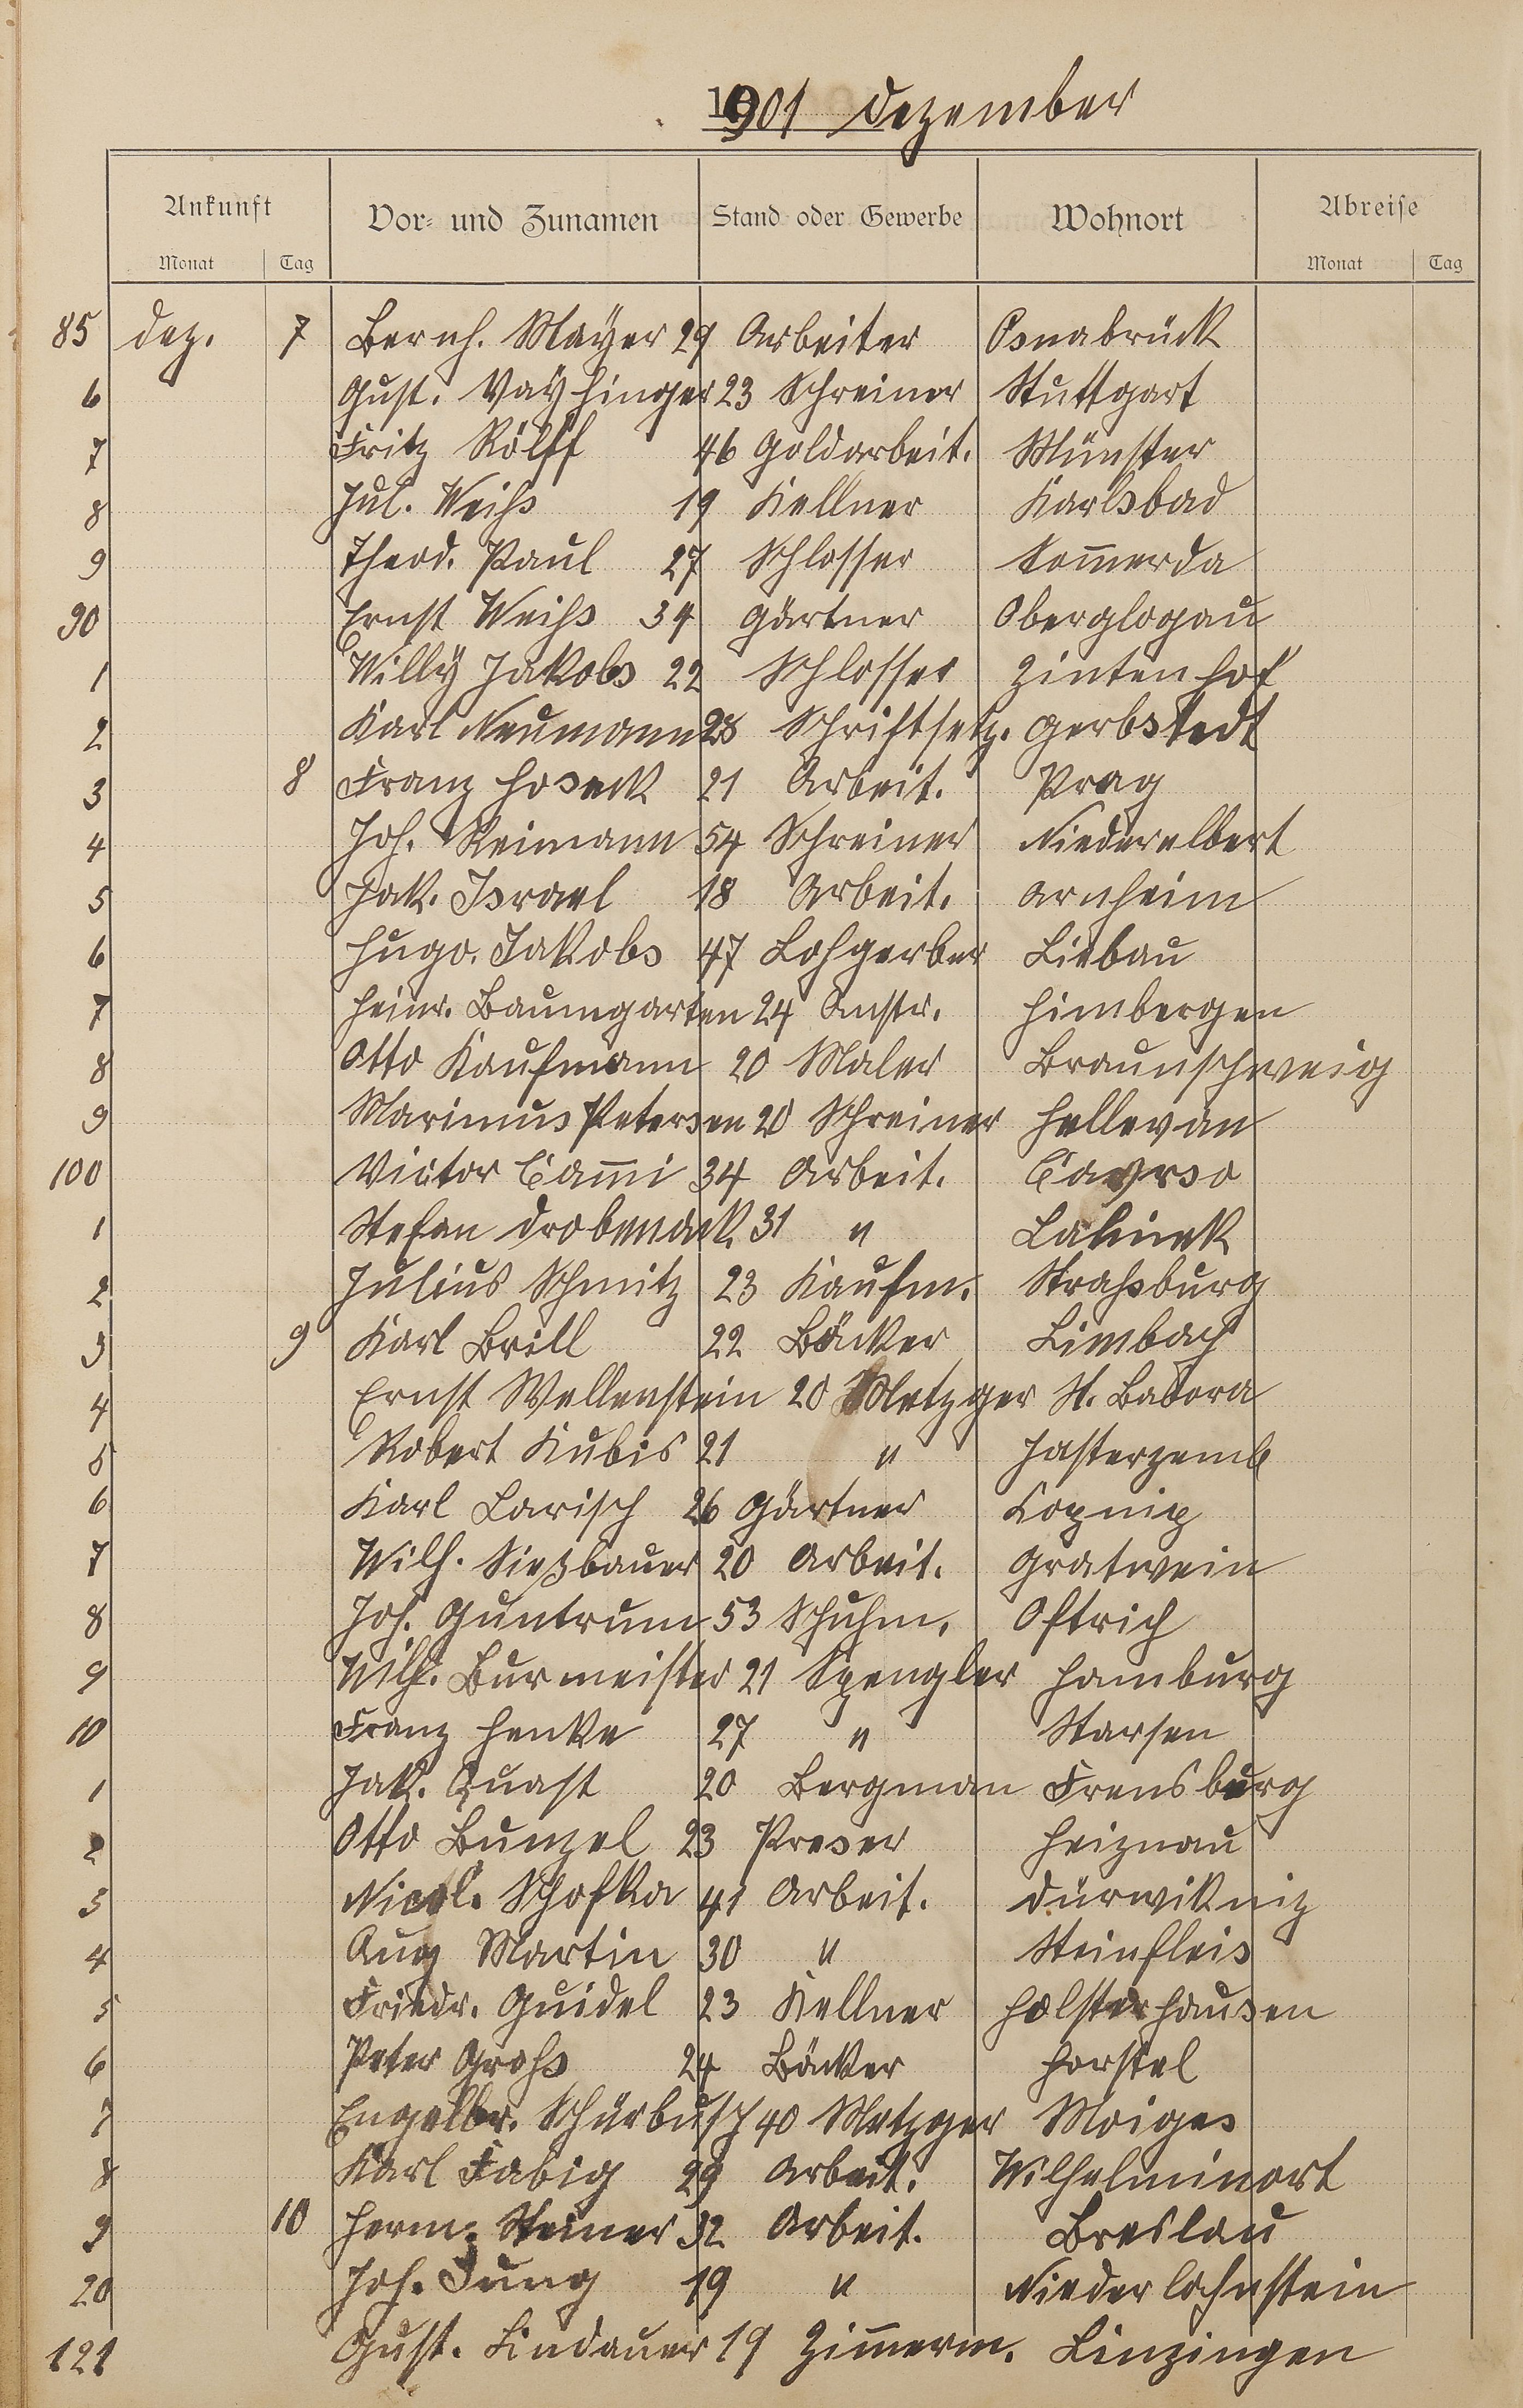 1901 Dezember
Ankunft Vor- und Zunamen Stand oder Gewerbe Wohnort Abreise
Monat Tag Monat Tag
85 Dez. 7 Bernh. Mayer 29 Arbeiter Osnabrück
6 Gust. Vayhinger 23 Schreiner Stuttgart
7 Fritz Rölff 46 Goldarbeit. Münster
8 Jul. Weihs 19 Kellner Karlsbad
9 Theod. Paul 27 Schlosser Som̄erda
90 Ernst Weihs 34 Gärtner Oberglogau
1 Willy Jakobs 22 Schlosser Zintenhof
2 Karl Neumann 28 Schriftsetz. Gerbstedt
3 8 Franz Hoseck 21 Arbeit. Prag
4 Joh. Reimann 54 Schreiner Niederelbert
5 Jak. Israel 18 Arbeit. Arnheim
6 Hugo. Jakobs 47 Lohgerber Liebau
7 Heinr. Baumgarten 24 Anstr. Himbergen
8 Otto Kaufmann 20 Maler Braunschweig
9 Marinus Petersen 20 Schreiner Hellevan
100 Victor Cam̄i 34 Arbeit. Cavrso
1 Stefan 31 " Lahinek
2 Julius Schmitz 23 Kaufm. Strahsburg
3 9 Karl Brill 22 Bäcker Limbach
4 Ernst Wellenstein 20 Metzger St. Babora
5 Robert Kubis 21 " Jasterzemb
6 Karl Larisch 26 Gärtner Kopnip
7 Wilh. Sießbauer 20 Arbeit. Gratwein
8 Joh. Guntrum 53 Schuhm. Oftrich
9 Wilh. Burmeister 21 Spengler Hamburg
10 Franz Henke 27 " Starsen
1 Jak. Quast 20 Bergman Frensburg
2 Otto Bunzel 23 Preser Heiznau
3 Nicol. Schofka 41 Arbeit. Dürwikniz
4 Aug Martin 30 " Steinfleis
5 Friedr. Guidel 23 Kellner Holsterhausen
6 Peter Grohs 24 Bäcker Horstel
7 Engelbr. Schürbusch 40 Metzger Moiges
8 Karl Fabig 29 Arbeit. Wilhelminort
9 10 Herm. Steiner 32 Arbeit. Breslau
20 Joh. Jung 19 " Niederlahnstein
121 Gust. Lindauer 19 Zim̄erm. Linzingen